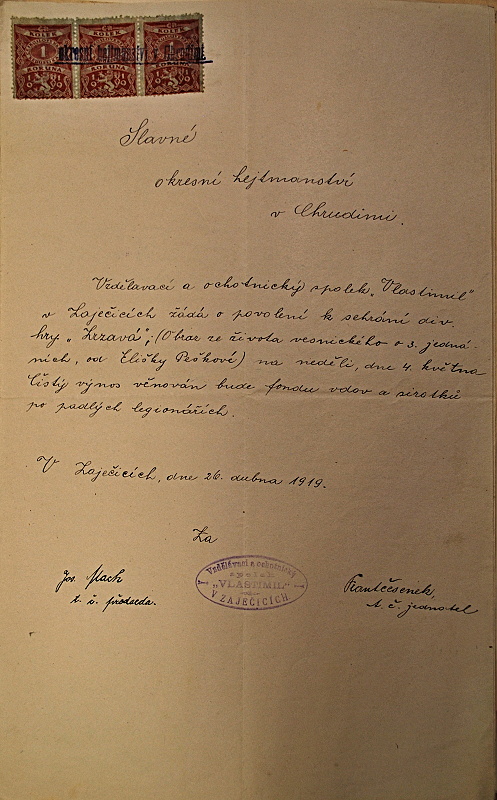 KOLEK
1
KORUNA
okresní hejtmanství v Chrudimi.
Slavné
okresní hejtmanství
v Chrudimi.
Vzdělávací a ochotnický spolek „Vlastimil"
v Zaječicích žádá o povolení k sehrání div.
hry „Zrzavá"; (Obraz ze života vesnického o 3. jedná-
ních, od Elišky Peškové) na neděli, dne 4. května
Čistý výnos věnován bude fondu vdov a sirotků
po padlých legionářích.
V Zaječicích, dne 26. dubna 1919.
Za
Jos. Mach
t. č. předseda.
Vzdělávací a ochotnický
spolek
„VLASTIMIL"
V ZAJEČICÍCH
Frant. Česenek,
t. č. jednatel